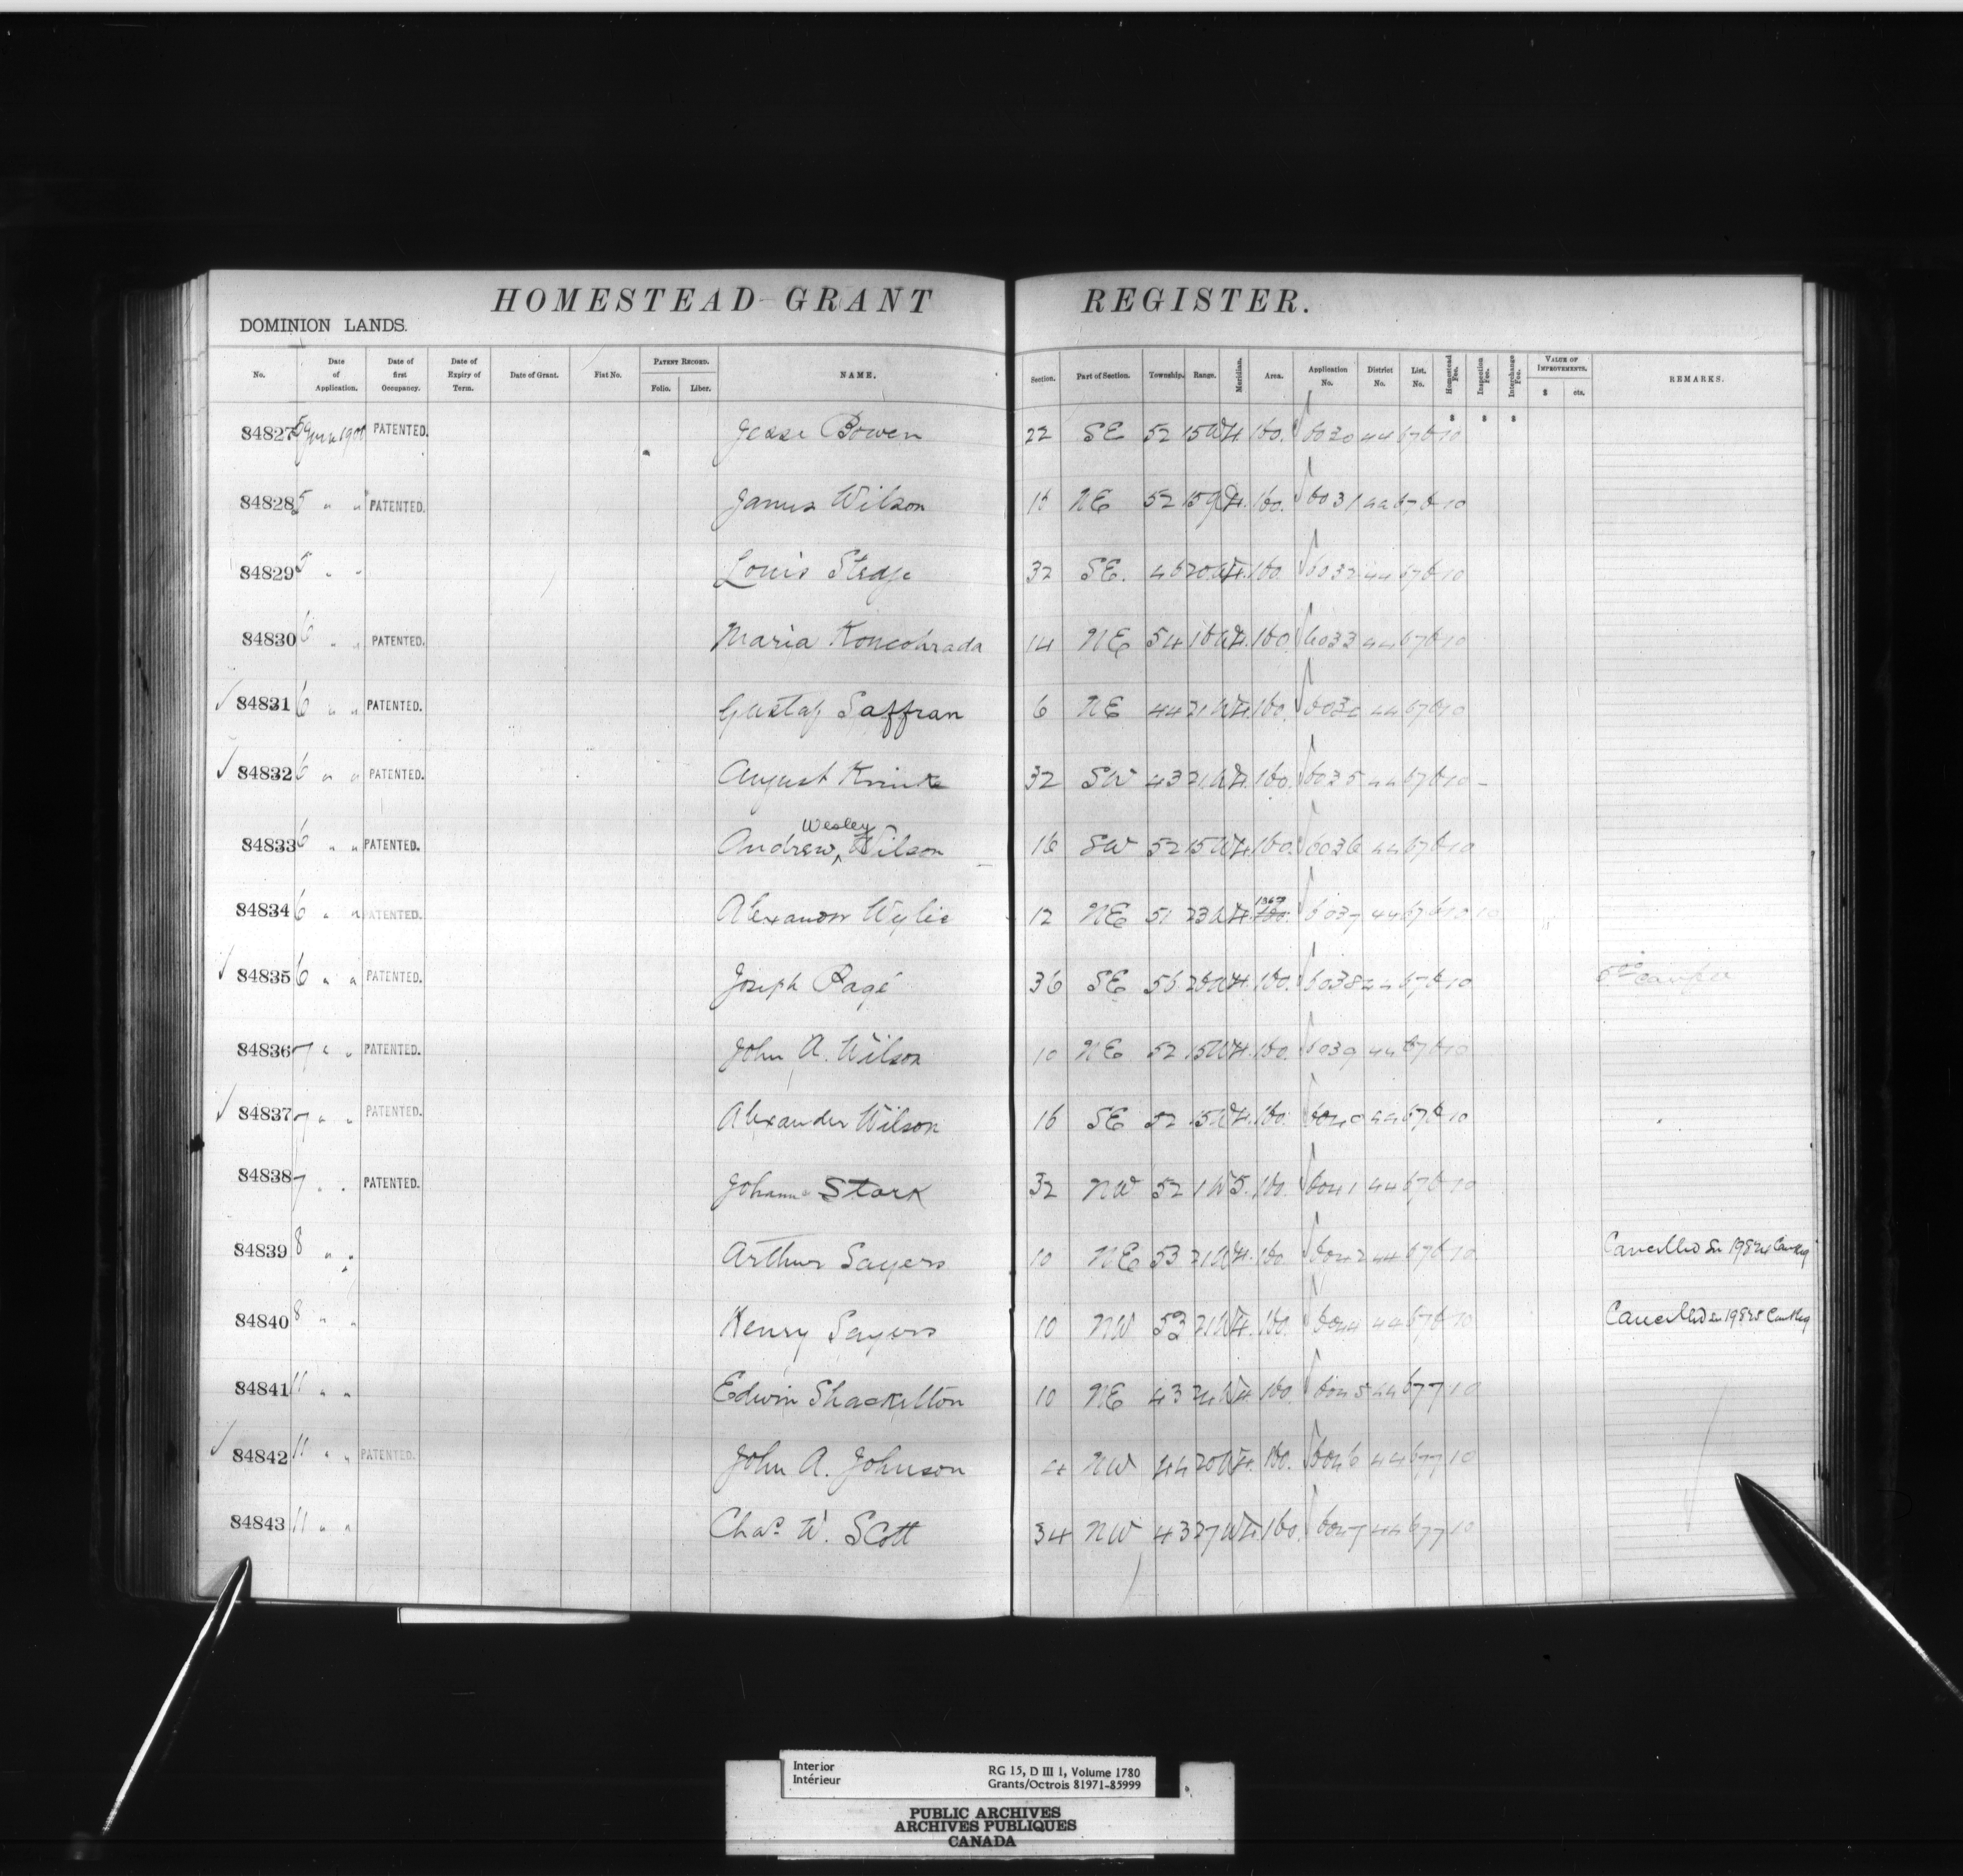 HOMESTEAD GRANT REGISTER.
DOMINION LANDS.
No. Date of Application. Date of first Occupancy. Date of Expiry of Term. Date of Grant. Fiat No. PATENT RECORD. Folio. Liber. NAME. Section. Part of Section. Township. Range. Meridian. Area. Application No. District No. List. No. Homestead Fee. Inspection Fee. Interchange Fee. VALUE OF IMPROVEMENTS. $ cts. REMARKS.
$ $ $
84827 5 1900 PATENTED. Jesse Bowen 22 SE 52 15 W 4. 160. 6030 44 676 10
84828 5 " " PATENTED. James Wilson 16 NE 52 15 W 4. 160. 6031 44 676 10
84829 5 " " Louis 32 SE. 46 20 W 4. 160. 6032 44 676 10
84830 6 " " PATENTED. Maria Koncohrada 14 NE 54 16 W 4. 160 6033 44 676 10
84831 6 " " PATENTED. Gustaf Saffran 6 NE 44 21 W 4. 160. 44 676 10
84832 6 " " PATENTED. August 32 SW 43 21 W 4. 160. 6035 44 676 10 -
84833 6 " " PATENTED. Andrew Wesley Wilson 16 SW 52 15 W 4. 160. 6036 44 676 10
84834 6 " " PATENTED. Alexander Wylie 12 NE 51 23 W 4. 160. 6037 44 676 10 10
84835 6 " " PATENTED. Joseph Pagé 36 SE 56 W 4. 160. 6038 44 676 10
84836 7 " " PATENTED. John A. Wilson 10 NE 52 15 W 4. 160. 6039 44 676 10
84837 7 " " PATENTED. Alexander Wilson 16 SE 52 15 W 4. 160. 6040 44 676 10
84838 7 " " PATENTED. Stark 32 NW 52 1 W 5. 160. 6041 44 676 10
84839 8 " " Arthur Sayers 10 NE 53 21 W 4. 160. 6042 44 676 10 Cancelled
84840 8 " " Henry Sayers 10 NW 53 21 W 4. 160. 44 676 10 Cancelled
84841 11 " " Edwin Shackelton 10 NE 43 W 4. 160. 6045 44 677 10
84842 11 " " PATENTED. John A. Johnson 4 NW 44 20 W 4. 160. 6046 44 677 10
84843 11 " " Chas. W. Scott 34 NW 43 27 W 4. 160. 6047 44 677 10
Interior
Intérieur
RG 15, D III 1, Volume 1780
Grants/Octrois 81971-85999
PUBLIC ARCHIVES
ARCHIVES PUBLIQUES
CANADA